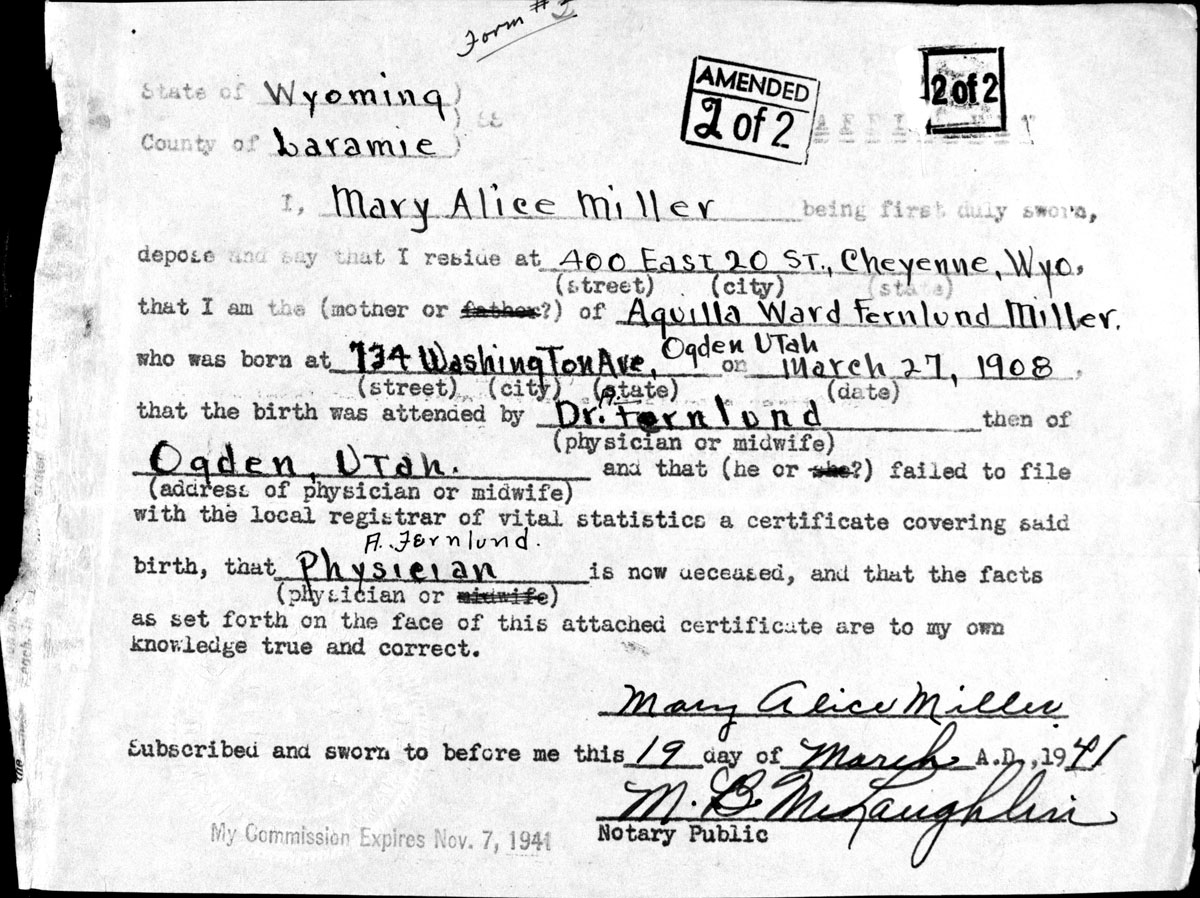 Form #2
AMENDED
2 of 2
2 of 2
State of Wyoming )
) SS
County of Laramie )
I, Mary Alice Miller being first duly sworn,
depose and say that I reside at 400 East 20 St., Cheyenne, Wyo.
(street) (city) (state)
that I am the (mother or father?) of Aquilla Ward Fernlund Miller.
Ogden Utah
who was born at 734 Washington Ave, on March 27, 1908.
(street) (city) (state) (date)
A.
that the birth was attended by Dr. Fernlund then of
(physician or midwife)
Ogden, Utah. and that (he or she?) failed to file
(address of physician or midwife)
with the local registrar of vital statistics a certificate covering said
A. Fernlund.
birth, that Physician is now deceased, and that the facts
(physician or midwife)
as set forth on the face of this attached certificate are to my own
knowledge true and correct.
Mary Alice Miller
Subscribed and sworn to before me this 19 day of March A.D.,1941
M. B. McLaughlin
My Commission Expires Nov. 7, 1941 Notary Public